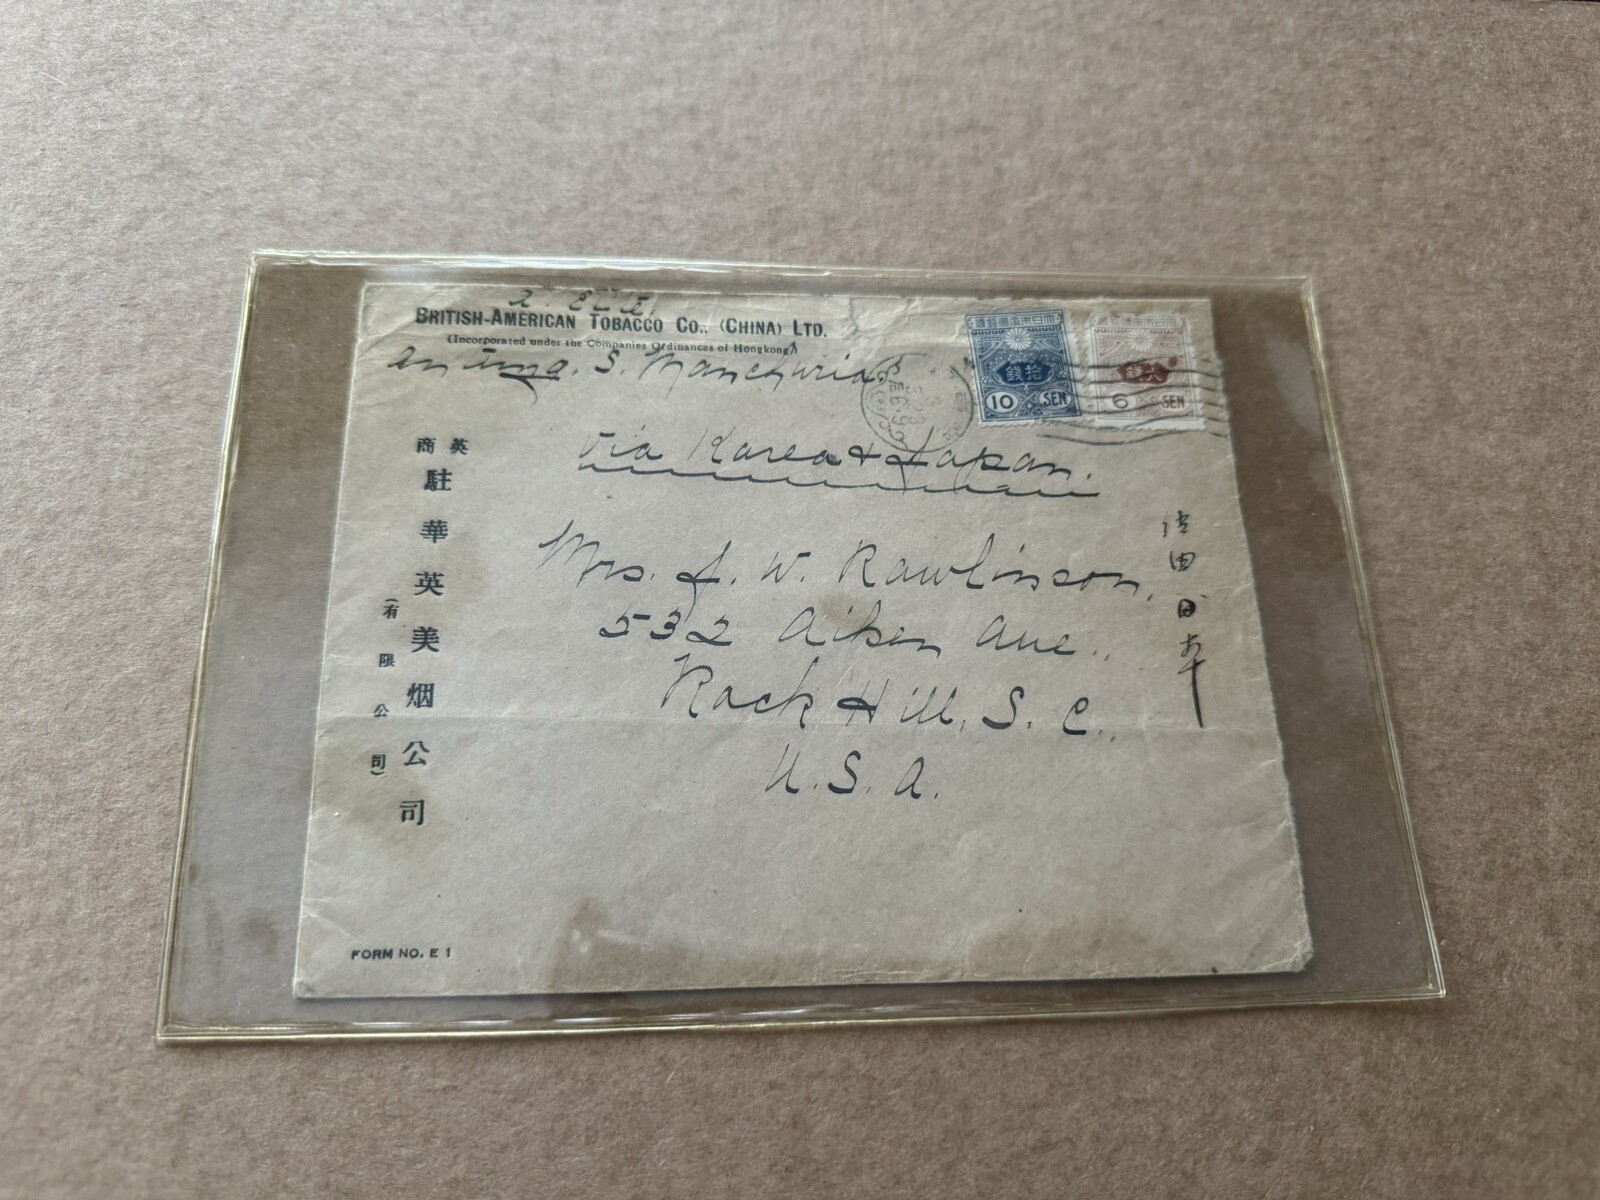 BRITISH-AMERICAN TOBACCO CO., (CHINA) LTD.
(Incorporated under the Companies Ordinances of Hongkong)
Antung. S. Manchuria.
大日本帝國郵便
拾錢
10 SEN
大日本帝國郵便
六錢
6 SEN
Via Korea & Japan.
Mrs. J. W. Rawlinson,
532 Aiken Ave.,
Rock Hill, S. C.,
U. S. A.
英商
駐華英美烟公司
(有限公司)
由日本
FORM NO. E 1